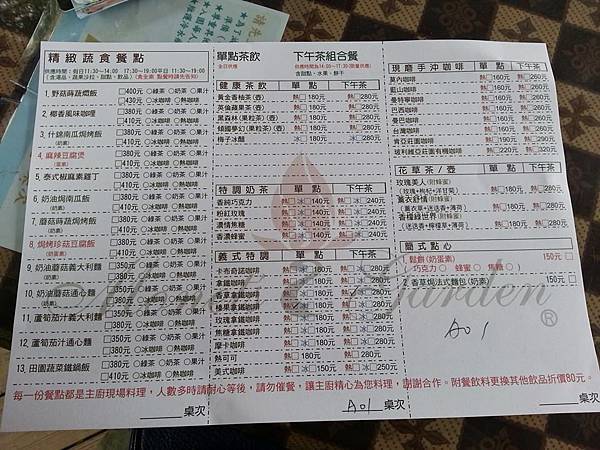 精緻蔬食餐點
供應時間：每日11:30~14:00 17:30~19:00平日 11:30~19:00
(含湯品、蔬果沙拉、甜點、飲品) (青全素 點餐時請先告知)
1. 野菇蒔蔬燜飯 □400元 ○綠茶 ○奶茶 ○果汁
□430元 ○冰咖啡 ○熱咖啡
2. 椰香風味咖哩 □380元 ○綠茶 ○奶茶 ○果汁
□410元 ○冰咖啡 ○熱咖啡
3. 什錦南瓜焗烤飯 □380元 ○綠茶 ○奶茶 ○果汁
(奶素) □410元 ○冰咖啡 ○熱咖啡
4. 麻辣豆腐煲 □380元 ○綠茶 ○奶茶 ○果汁
□410元 ○冰咖啡 ○熱咖啡
5. 泰式椒麻素雞丁 □380元 ○綠茶 ○奶茶 ○果汁
□410元 ○冰咖啡 ○熱咖啡
6. 奶油焗南瓜飯 □350元 ○綠茶 ○奶茶 ○果汁
(奶素) □380元 ○冰咖啡 ○熱咖啡
7. 蘑菇時蔬焗烤飯 □380元 ○綠茶 ○奶茶 ○果汁
(奶素) □410元 ○冰咖啡 ○熱咖啡
8. 焗烤珍菇豆腐飯 □380元 ○綠茶 ○奶茶 ○果汁
(奶素) □410元 ○冰咖啡 ○熱咖啡
9. 奶油蘑菇義大利麵 □350元 ○綠茶 ○奶茶 ○果汁
(奶素) □380元 ○冰咖啡 ○熱咖啡
10. 奶油蘑菇通心麵 □350元 ○綠茶 ○奶茶 ○果汁
(奶素) □380元 ○冰咖啡 ○熱咖啡
11. 蘆筍茄汁義大利麵 □350元 ○綠茶 ○奶茶 ○果汁
□380元 ○冰咖啡 ○熱咖啡
12. 蘆筍茄汁通心麵 □350元 ○綠茶 ○奶茶 ○果汁
□380元 ○冰咖啡 ○熱咖啡
13. 田園蔬菜鐵鍋飯 □380元 ○綠茶 ○奶茶 ○果汁
□410元 ○冰咖啡 ○熱咖啡
單點茶飲 下午茶組合餐
全日供應 供應時間為14:00~17:30(限量供應)
含甜點、水果、餅干
健康茶飲 單點 下午茶
黃金香柚茶(壺) 熱□ 180元 熱□ 280元
英倫蘋果茶(壺) 熱□ 180元 熱□ 280元
黑森林(果粒茶)(壺) 熱□ 180元 熱□ 280元
傾國夢幻(果粒茶)(壺) 熱□ 180元 熱□ 280元
梅子冰醋 冰□ 180元 冰□ 280元
特調奶茶 單點 下午茶
香純巧克力 熱□ 冰□ 140元 熱□ 冰□ 240元
粉紅玫瑰 熱□ 冰□ 140元 熱□ 冰□ 240元
濃情焦糖 熱□ 冰□ 140元 熱□ 冰□ 240元
香濃蜂蜜 熱□ 冰□ 140元 熱□ 冰□ 240元
義式特調 單點 下午茶
卡布奇諾咖啡 熱□ 冰□ 180元 熱□ 冰□ 280元
拿鐵咖啡 熱□ 冰□ 180元 熱□ 冰□ 280元
拿鐵咖啡 熱□ 冰□ 180元 熱□ 冰□ 280元
榛果拿鐵咖啡 熱□ 冰□ 180元 熱□ 冰□ 280元
玫瑰拿鐵咖啡 熱□ 冰□ 180元 熱□ 冰□ 280元
焦糖拿鐵咖啡 熱□ 冰□ 180元 熱□ 冰□ 280元
摩卡咖啡 熱□ 冰□ 180元 熱□ 冰□ 280元
熱可可 熱□ 180元 熱□ 280元
美式咖啡 熱□ 冰□ 150元 熱□ 冰□ 250元
現磨手沖咖啡 單點 下午茶
莫內咖啡 熱□160元 熱□260元
藍山咖啡 熱□160元 熱□260元
曼特寧咖啡 熱□160元 熱□260元
巴西咖啡 熱□160元 熱□260元
曼巴咖啡 熱□160元 熱□260元
台灣咖啡 熱□160元 熱□260元
肯亞莊園咖啡 熱□190元 熱□290元
玻利維亞莊園有機咖啡 熱□220元 熱□320元
花草茶/壺 單點 下午茶
玫瑰美人(附蜂蜜) 熱□180元 熱□280元
(玫瑰+枸杞+洋甘菊)
薰衣舒情(附蜂蜜) 熱□180元 熱□280元
(薰衣草+迷迭香+薄荷)
香檬綠世界(附蜂蜜) 熱□180元 熱□280元
簡式點心
□ 鬆餅(奶蛋素) 150元□
巧克力○ 蜂蜜○ 焦糖○
□ 香草焗法式麵包(奶素) 150元□
Garden
®
A01
每一份餐點都是主廚現場料理，人數多時請耐心等後，請勿催餐，讓主廚精心為您料理，謝謝合作。附餐飲料更換其他飲品折價80元。
桌次 A01 桌次 桌次